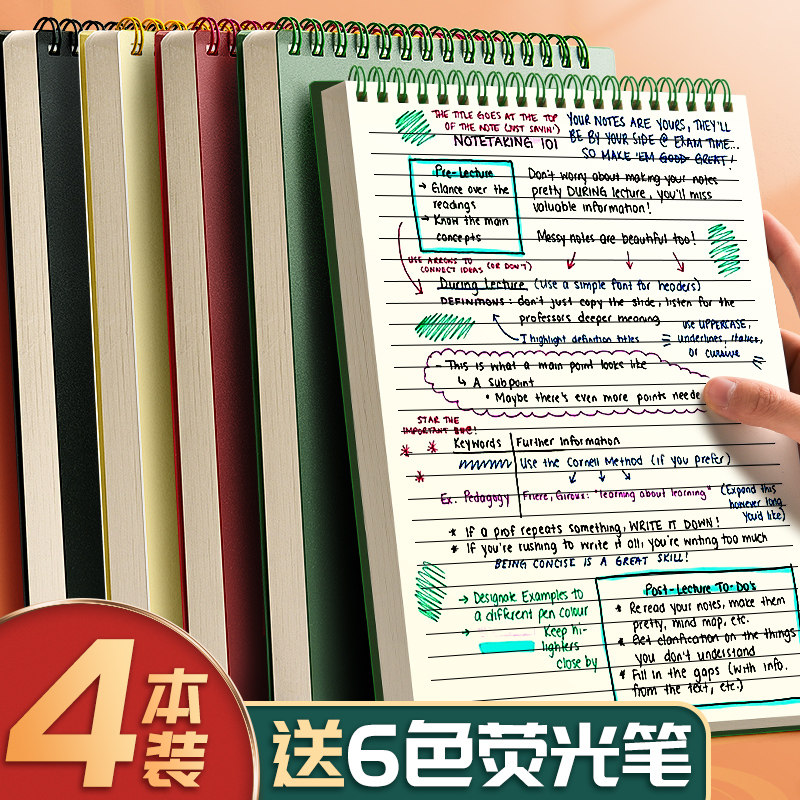 THE TITLE GOES AT THE TOP
OF THE NOTE (JUST SAYIN')
NOTETAKING 101
YOUR NOTES ARE YOURS, THEY'LL
BE BY YOUR SIDE @ EXAM TIME...
SO MAKE 'EM GOOD GREAT!
Pre-Lecture
→ Glance over the
readings
→ Know the main
concepts
Don't worry about making your notes
pretty DURING lecture, you'll miss
valuable information!
Messy notes are beautiful too!
USE ARROWS TO
CONNECT IDEAS (OR DON'T)
During Lecture (Use a simple font for headers)
DEFINITIONS: don't just copy the slide, listen for the
professors deeper meaning
I highlight definition titles
use UPPERCASE,
underlines, italics,
or cursive
- This is what a main point looks like
↳ A Subpoint
• Maybe there's even more points neede
STAR THE
IMPORTANT
Keywords
Further Information
Use the Cornell Method (if you prefer)
Ex. Pedagogy
Friere, Giroux: "learning about learning"
(Expand this
however long
you'd like)
* If a prof repeats something, WRITE IT DOWN!
* If you're rushing to write it all, you're writing too much
BEING CONCISE IS A GREAT SKILL!
→ Designate Examples to
a different pen colour
→ Keep hi-
lighters
close by
Post-Lecture To-Do's
* Reread your notes, make them
pretty, mind map, etc.
* Get clarification on the things
you don't understand
* Fill in the gaps (with info.
from the text, etc.)
4本装
送6色荧光笔